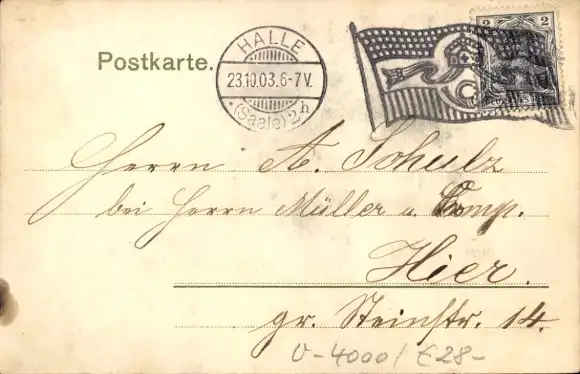 Postkarte.
HALLE
23.10.03.6-7V.
*(Saale)2
2 2
Herrn A. Schulz
bei Herrn Müller u. Comp.
Hier.
gr. Steinstr. 14.
U-4000/ £28-